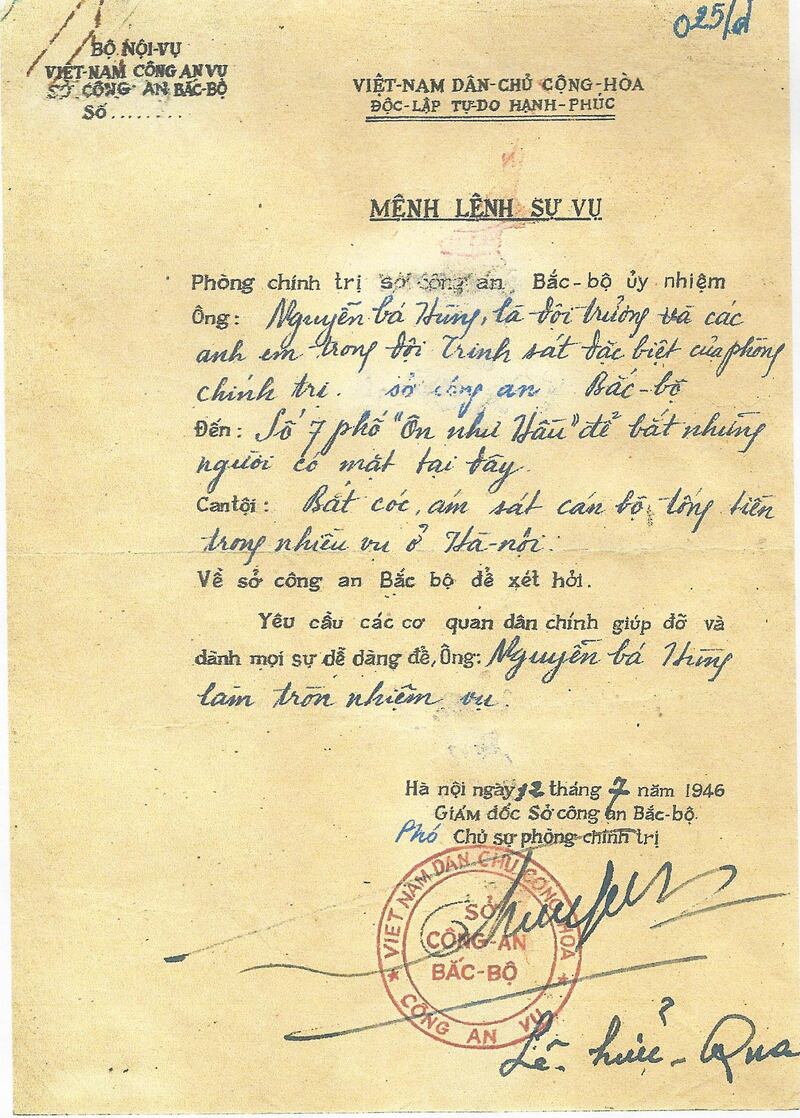 025/đ
BỘ NỘI-VỤ
VIỆT-NAM CÔNG AN VỤ
SỞ CÔNG AN BẮC-BỘ
Số ........
VIỆT-NAM DÂN-CHỦ CỘNG-HÒA
ĐỘC-LẬP TỰ-DO HẠNH-PHÚC
MỆNH LỆNH SỰ VỤ
Phòng chính trị sở công an Bắc-bộ ủy nhiệm
Ông: Nguyễn bá Hùng, là đội trưởng và các
anh em trong đội Trinh sát đặc biệt của phòng
chính trị. sở công an Bắc-bộ
Đến: Số 7 phố "Ôn như Hầu" để bắt những
người có mặt tại đây.
Can tội: Bắt cóc, ám sát cán bộ, tống tiền
trong nhiều vụ ở Hà-nội.
Về sở công an Bắc bộ để xét hỏi.
Yêu cầu các cơ quan dân chính giúp đỡ và
dành mọi sự dễ dàng để, Ông: Nguyễn bá Hùng
làm tròn nhiệm vụ.
Hà nội ngày 12 tháng 7 năm 1946
GIÁM đốc Sở công an Bắc-bộ.
Phó Chủ sự phòng chính trị
VIỆT NAM DÂN CHỦ CỘNG HÒA
SỞ
CÔNG-AN
BẮC-BỘ
CÔNG AN VỤ
Lê-hữu-Qua